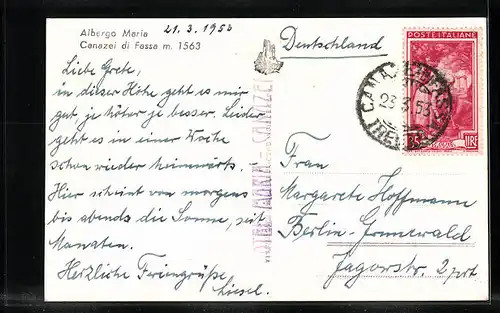 Albergo Maria
Canazei di Fassa m. 1563
21. 3. 1953
Deutschland
Liebe Grete,
in dieser Höhe geht es mir
gut, je höher je besser. Leider
geht es in einer Woche
schon wieder heimwärts.
Hier scheint von morgens
bis abends die Sonne, seit
Monaten.
Herzliche Feriengrüße,
Liesel.
Frau
Margarete Hoffmann
Berlin-Grunewald
Jagowstr. 2 prt
POSTE ITALIANE
LIRE
23.3.53